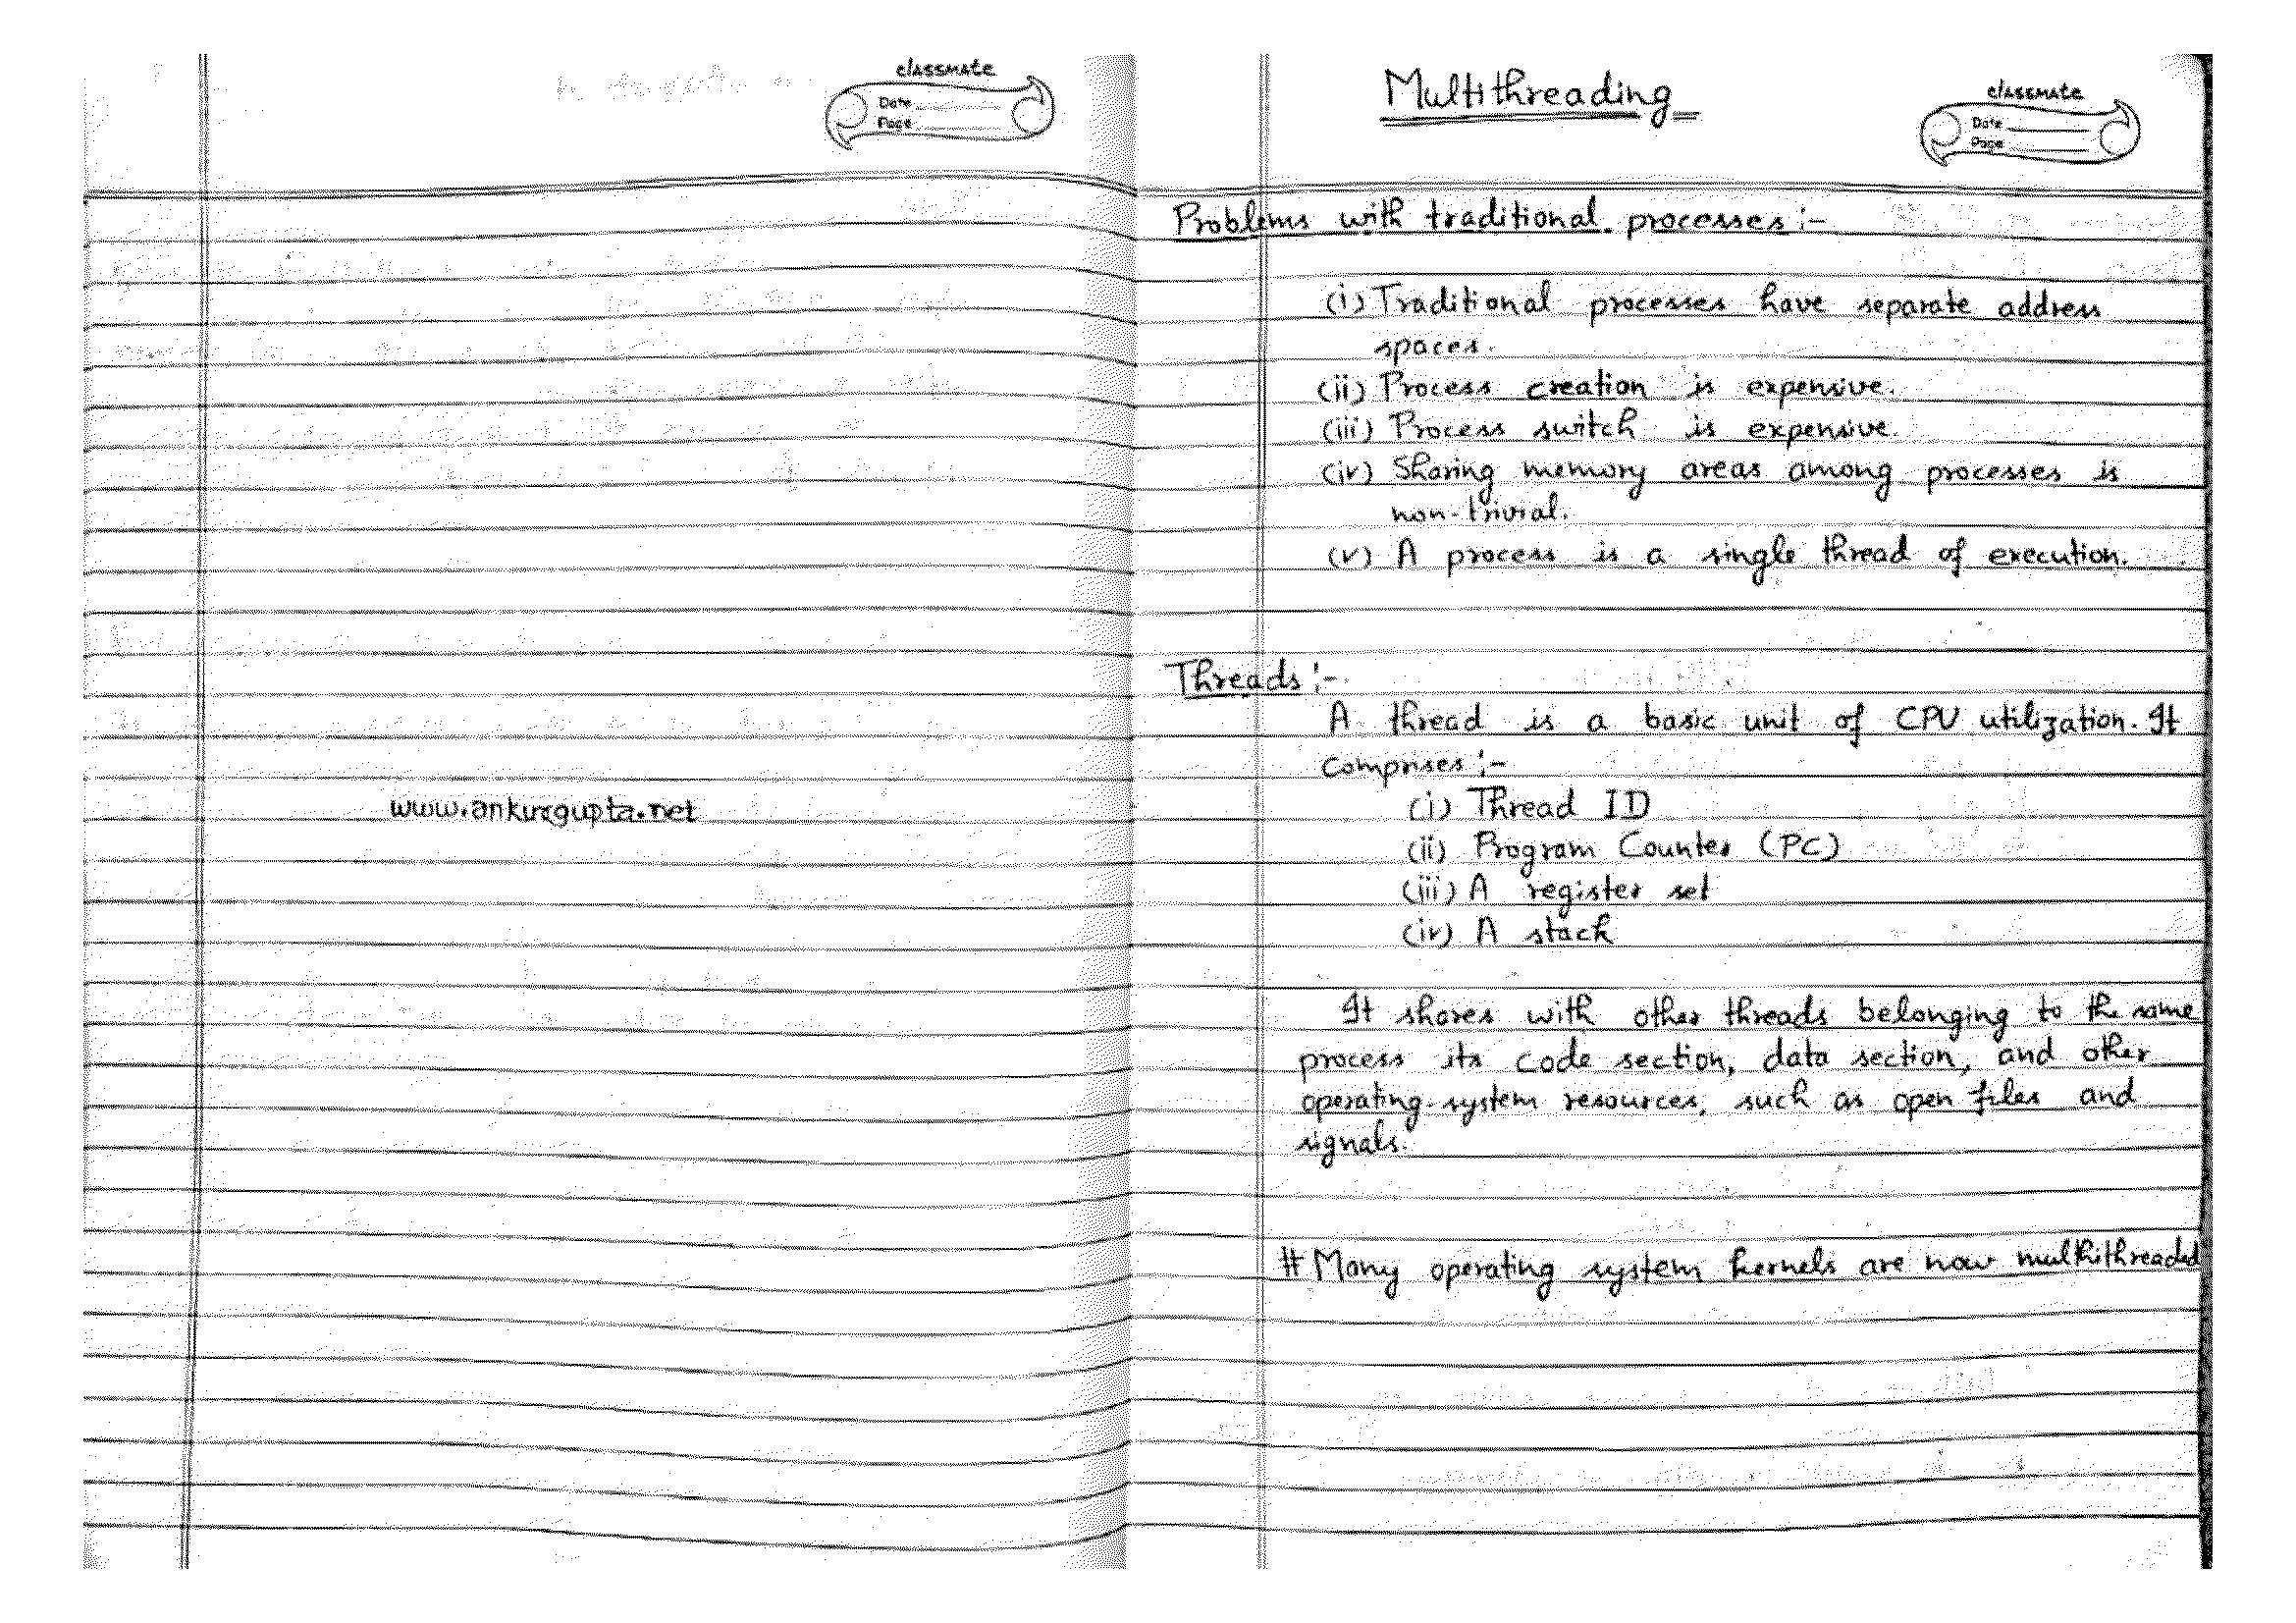 classmate
Date
Page
www.ankurgupta.net
Multithreading
classmate
Date
Page
Problems with traditional processes:-
(i) Traditional processes have separate address
spaces.
(ii) Process creation is expensive.
(iii) Process switch is expensive.
(iv) Sharing memory areas among processes is
non-trivial.
(v) A process is a single thread of execution.
Threads:-
A thread is a basic unit of CPU utilization. It
comprises:-
(i) Thread ID
(ii) Program Counter (PC)
(iii) A register set
(iv) A stack
It shares with other threads belonging to the same
process its code section, data section, and other
operating-system resources, such as open files and
signals.
# Many operating system kernels are now multhithreaded